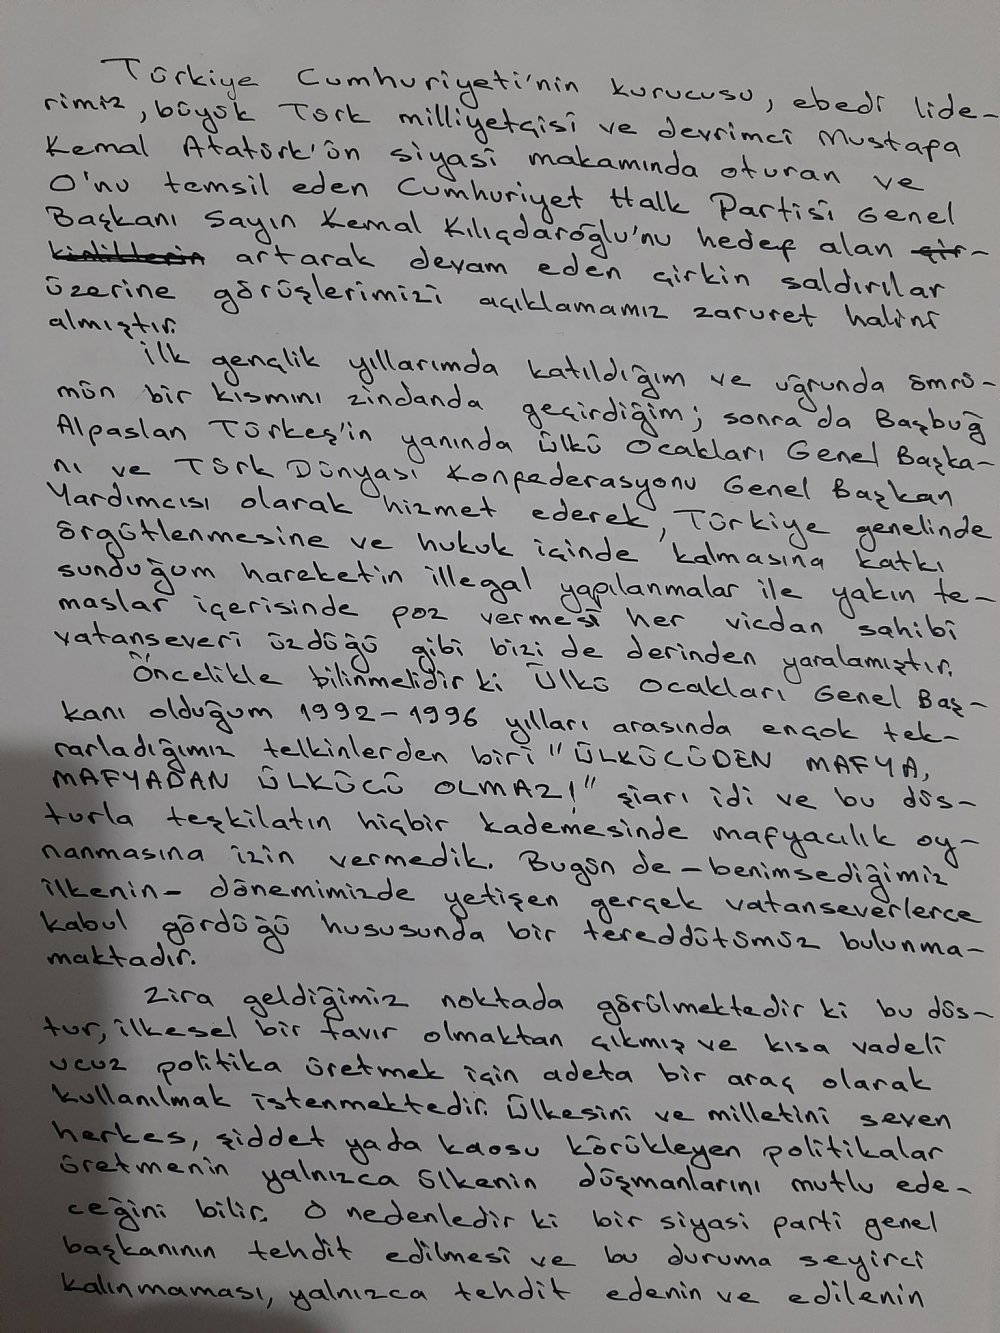 Türkiye Cumhuriyeti'nin kurucusu, ebedî lide-
rimiz, büyük Türk milliyetçisi ve devrimci Mustafa
Kemal Atatürk'ün siyasî makamında oturan ve
O'nu temsil eden Cumhuriyet Halk Partisi Genel
Başkanı Sayın Kemal Kılıçdaroğlu'nu hedef alan çir-
kinliklerin artarak devam eden çirkin saldırılar
üzerine görüşlerimizi açıklamamız zaruret halini
almıştır.
İlk gençlik yıllarımda katıldığım ve uğrunda ömrü-
mün bir kısmını zindanda geçirdiğim; sonra da Başbuğ
Alpaslan Türkeş'in yanında Ülkü Ocakları Genel Başka-
nı ve Türk Dünyası Konfederasyonu Genel Başkan
Yardımcısı olarak hizmet ederek, Türkiye genelinde
örgütlenmesine ve hukuk içinde kalmasına katkı
sunduğum hareketin illegal yapılanmalar ile yakın te-
maslar içerisinde poz vermesi her vicdan sahibi
vatanseveri üzdüğü gibi bizi de derinden yaralamıştır.
Öncelikle bilinmelidir ki Ülkü Ocakları Genel Baş-
kanı olduğum 1992-1996 yılları arasında ençok tek-
rarladığımız telkinlerden biri "ÜLKÜCÜDEN MAFYA,
MAFYADAN ÜLKÜCÜ OLMAZ!" şiarı idi ve bu düs-
turla teşkilatın hiçbir kademesinde mafyacılık oy-
nanmasına izin vermedik. Bugün de - benimsediğimiz
ilkenin - dönemimizde yetişen gerçek vatanseverlerce
kabul gördüğü hususunda bir tereddütümüz bulunma-
maktadır.
Zira geldiğimiz noktada görülmektedir ki bu düs-
tur, ilkesel bir tavır olmaktan çıkmış ve kısa vadeli
ucuz politika üretmek için adeta bir araç olarak
kullanılmak istenmektedir. Ülkesini ve milletini seven
herkes, şiddet yada kaosu körükleyen politikalar
üretmenin yalnızca ülkenin düşmanlarını mutlu ede-
ceğini bilir. O nedenledir ki bir siyasi parti genel
başkanının tehdit edilmesi ve bu duruma seyirci
kalınmaması, yalnızca tehdit edenin ve edilenin